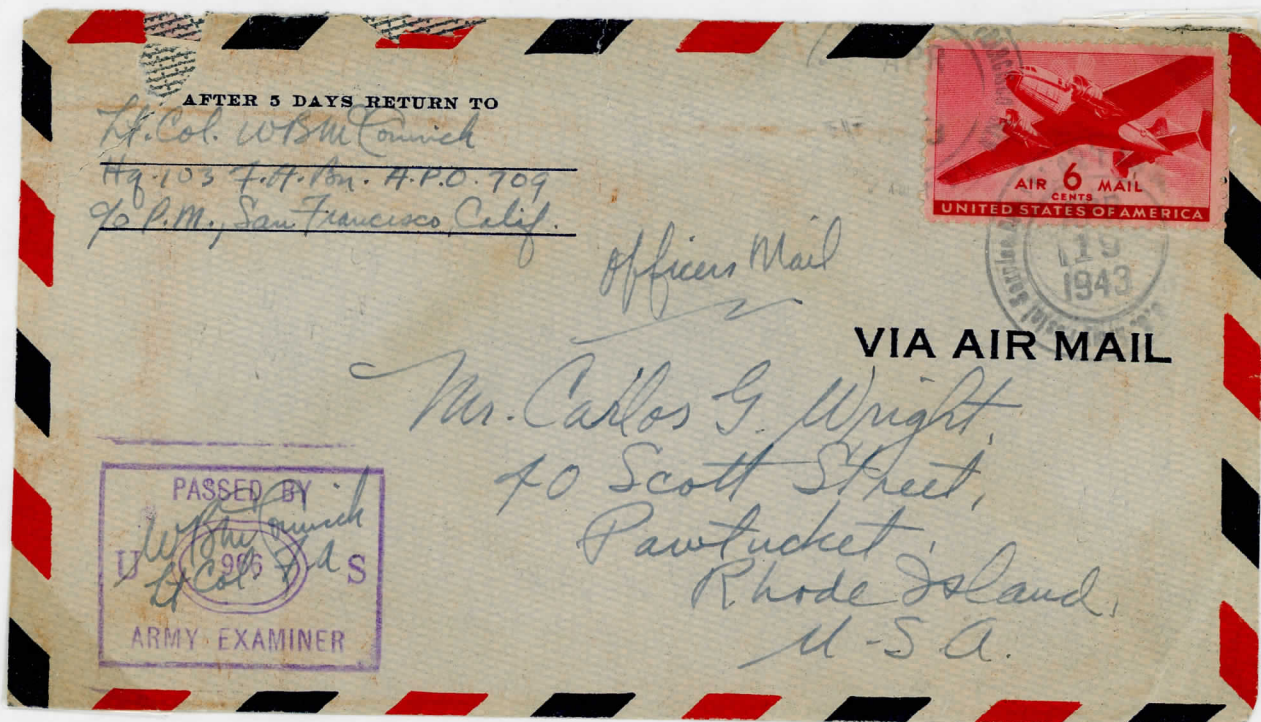 AFTER 5 DAYS RETURN TO
Lt. Col. WBMcCormick
Hq. 103 F.A. Bn. A.P.O. 709
c/o P.M., San Francisco, Calif.
AIR 6 MAIL
CENTS
UNITED STATES OF AMERICA
19
1943
Officers Mail
VIA AIR MAIL
Mr. Carlos G. Wright,
40 Scott Street,
Pawtucket,
Rhode Island,
U-S A.
PASSED BY
WBMcCormick
U 996 S
Lt Col. F A
ARMY EXAMINER